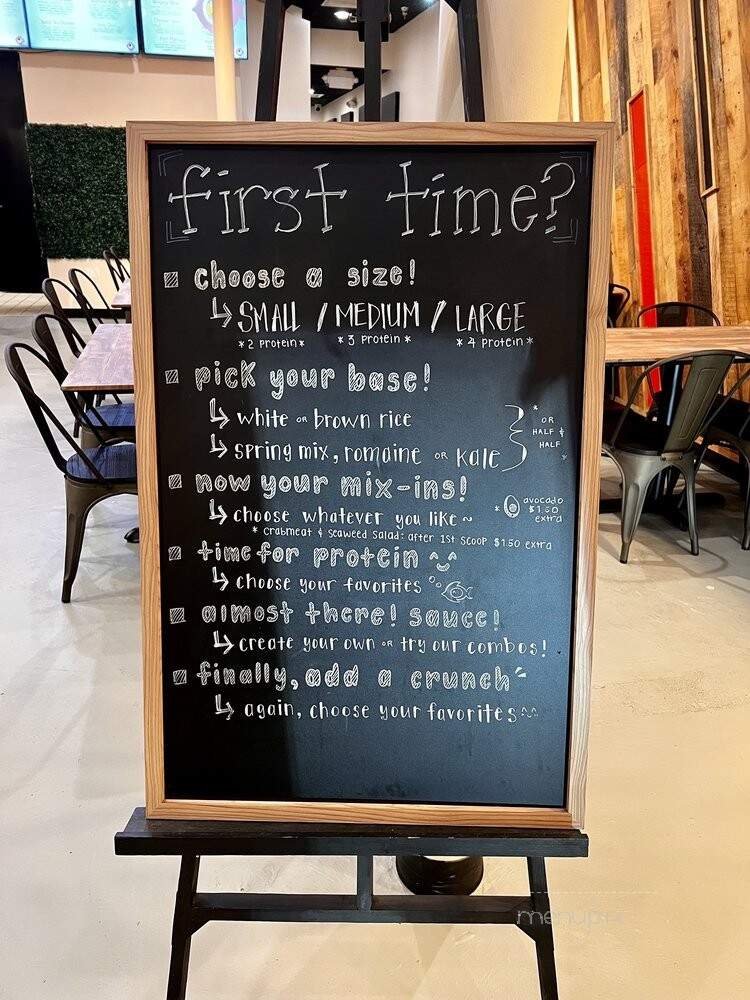 first time?
choose a size!
SMALL / MEDIUM / LARGE
*2 Protein* *3 Protein* *4 Protein*
pick your base!
white or brown rice
spring mix, romaine or kale
* OR
HALF &
HALF *
now your mix-ins!
choose whatever you like ~
* avocado
$1.50
extra
* crabmeat & seaweed salad: after 1st scoop $1.50 extra
time for protein
choose your favorites
almost there! sauce!
create your own or try our combos!
finally, add a crunch
again, choose your favorites ^^
menupix